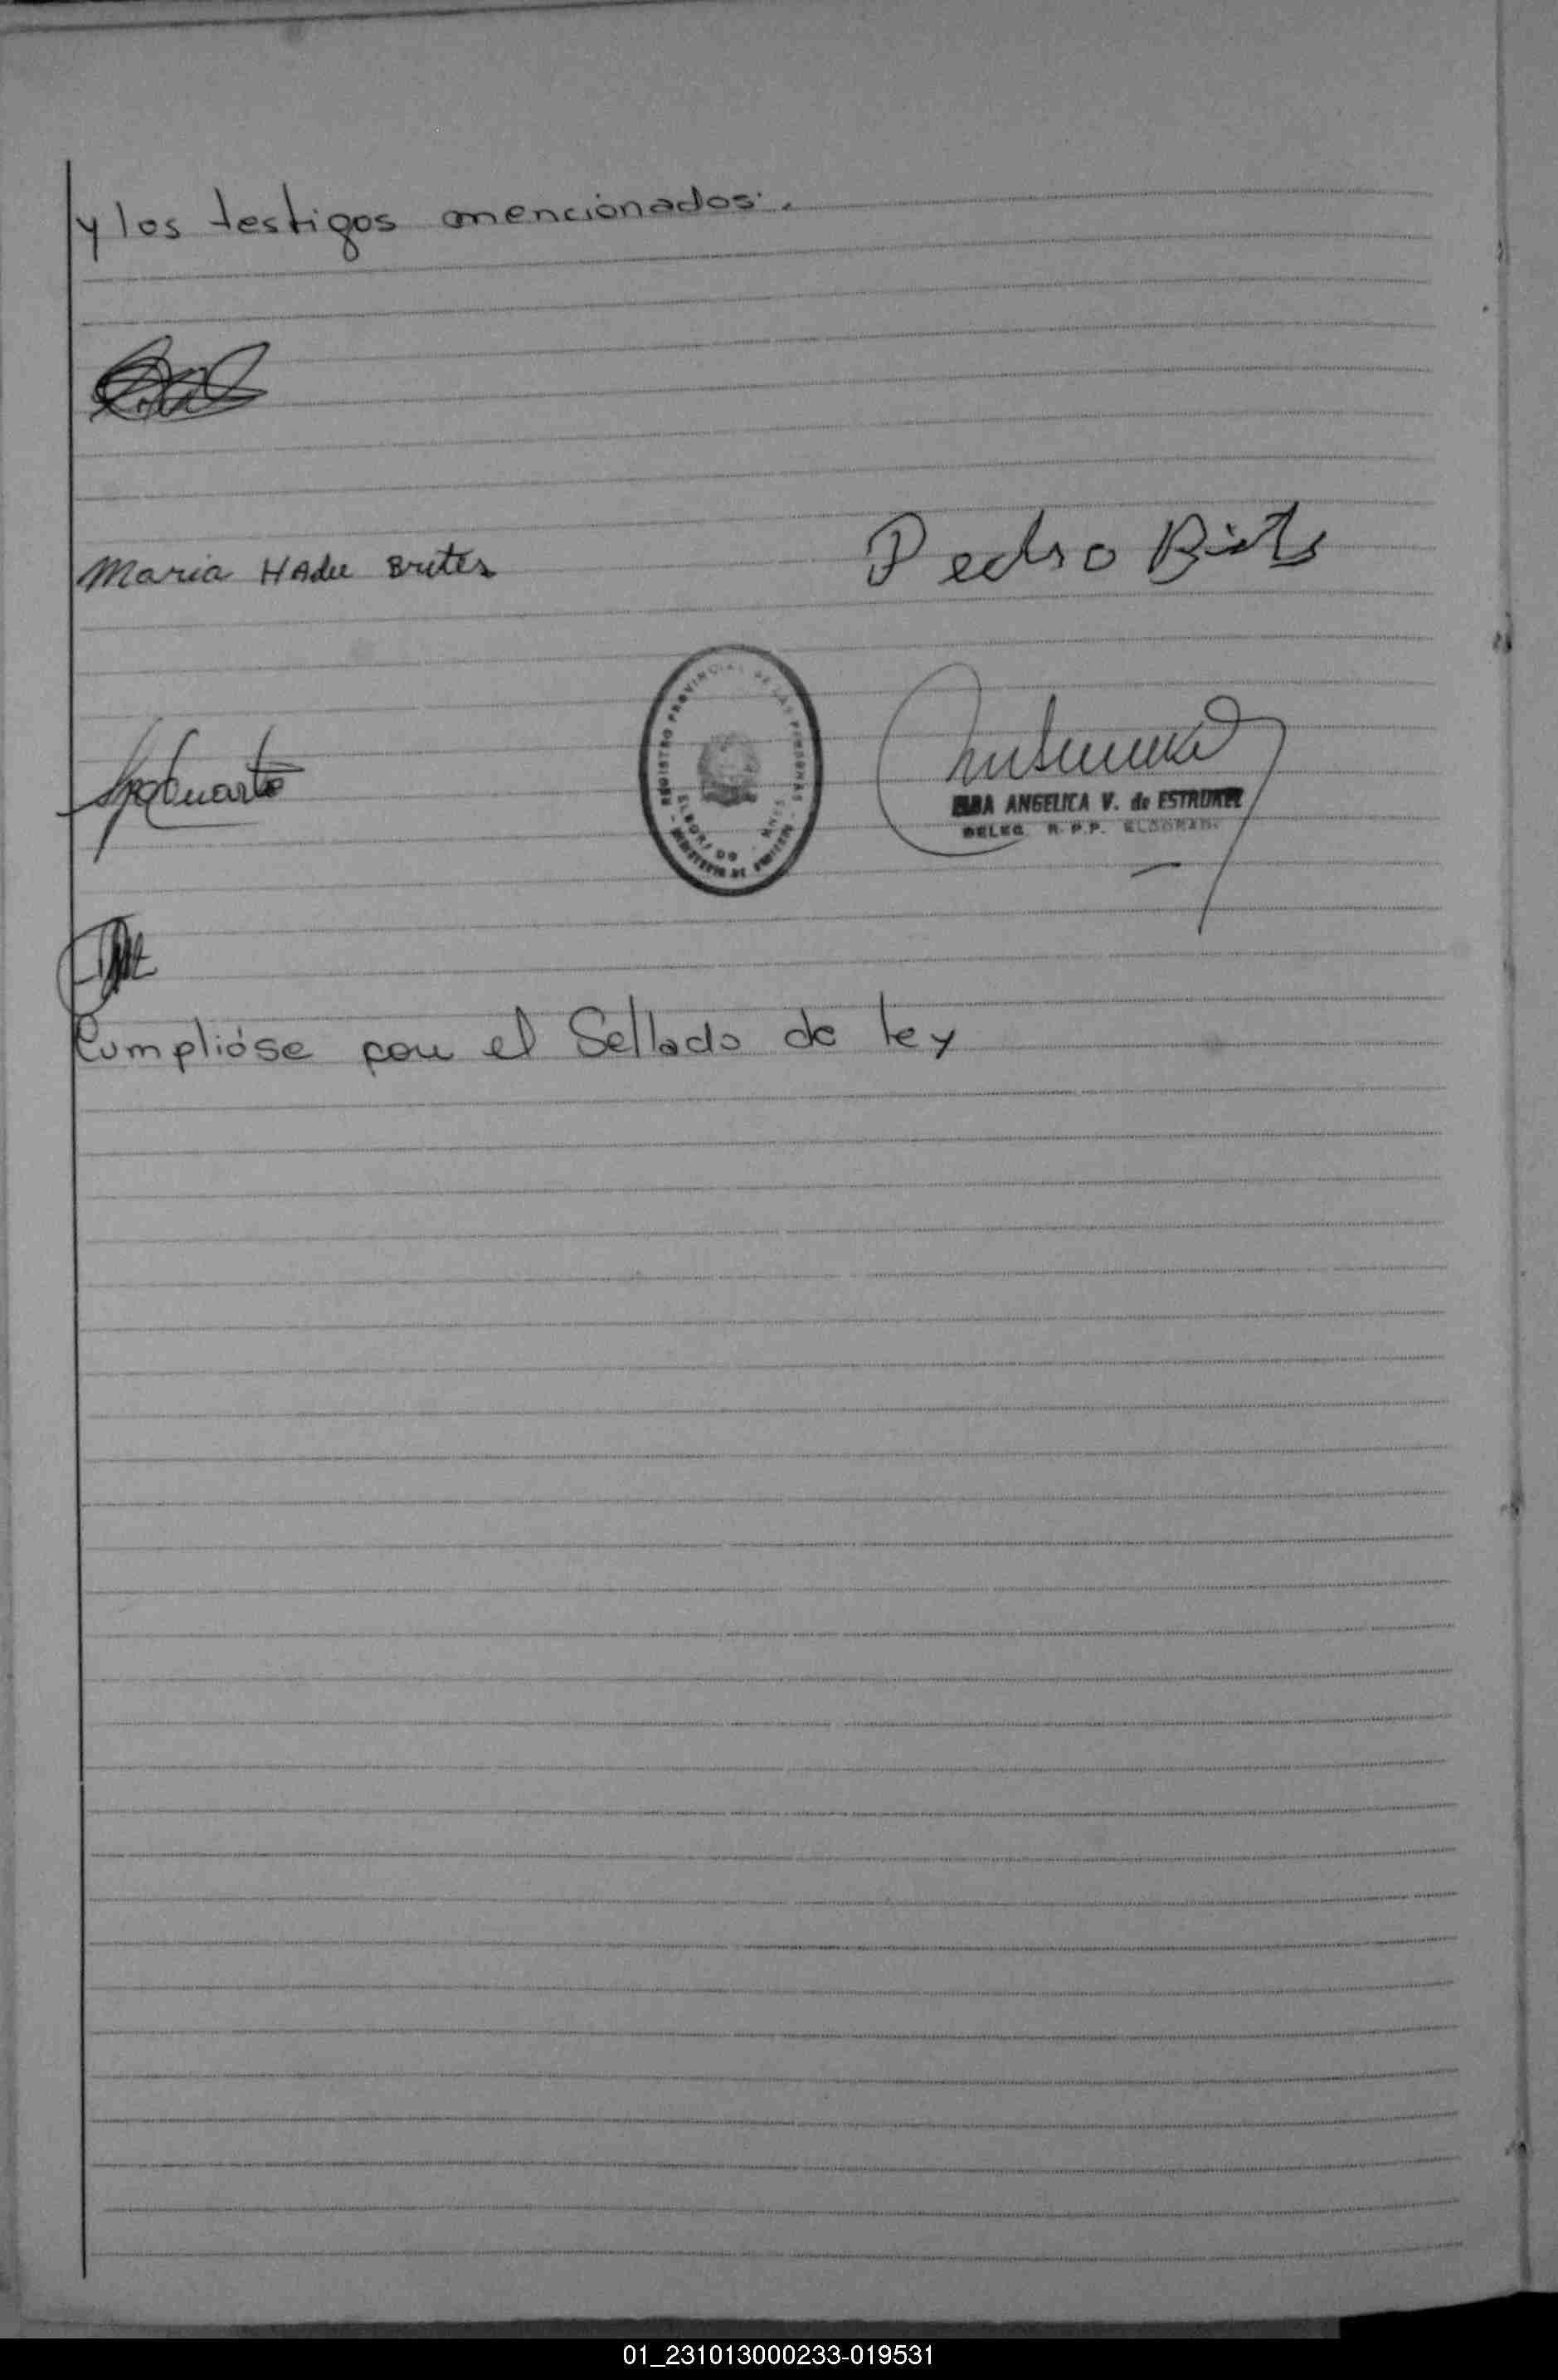 y los testigos mencionados.
Maria HAdee Brites
Pedro
REGISTRO PROVINCIAL DE LAS PERSONAS
ELDORADO - MNES
MINISTERIO DE GOBIERNO
ELBA ANGELICA V. de ESTRUMEL
DELEG. R.P.P. ELDORADO
Cumplióse con el Sellado de Ley
01_231013000233-019531